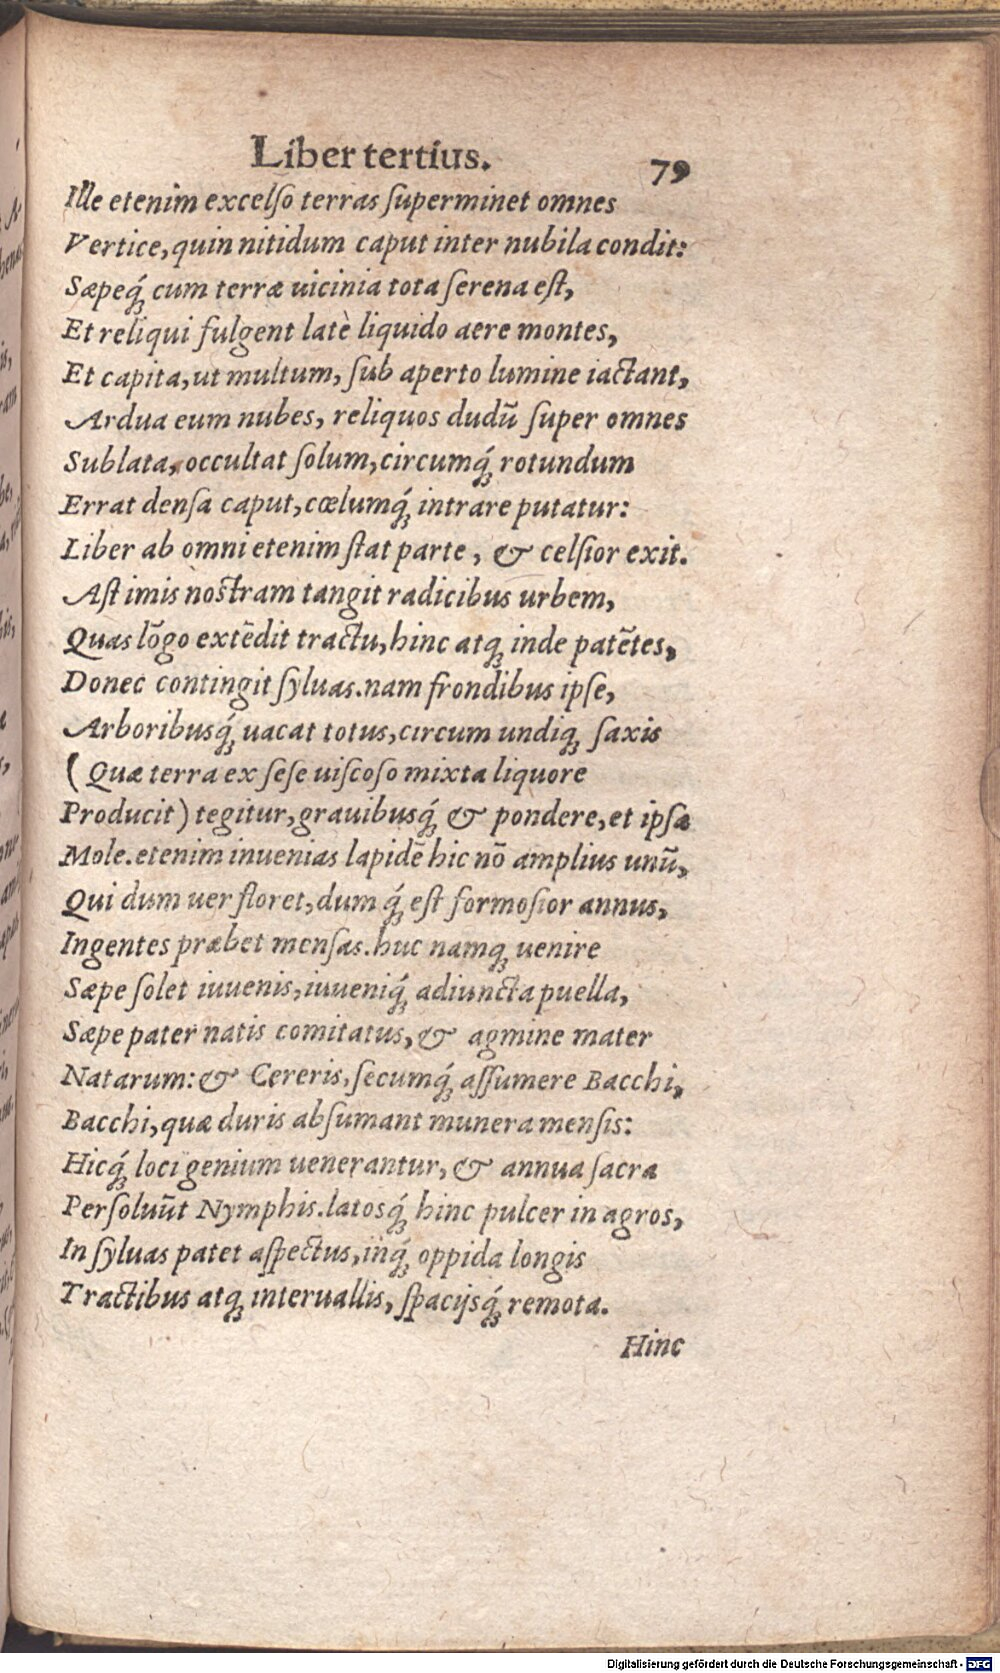 Liber tertius. 79
Ille etenim excelſo terras ſuperminet omnes
Vertice, quin nitidum caput inter nubila condit:
Sæpeq́; cum terræ uicinia tota ſerena eſt,
Et reliqui fulgent latè liquido aere montes,
Et capita, ut multum, ſub aperto lumine iactant,
Ardua eum nubes, reliquos dudū ſuper omnes
Sublata, occultat ſolum, circumq́; rotundum
Errat denſa caput, cœlumq́; intrare putatur:
Liber ab omni etenim ſtat parte, & celſior exit.
Aſt imis noſtram tangit radicibus urbem,
Quas lōgo extēdit tractu, hinc atq; inde patētes,
Donec contingit ſyluas. nam frondibus ipſe,
Arboribusq́; uacat totus, circum undiq; ſaxis
(Quæ terra ex ſeſe uiſcoſo mixta liquore
Producit) tegitur, grauibusq́; & pondere, et ipſa
Mole. etenim inuenias lapidē hic nō amplius unū,
Qui dum uer floret, dum q́; eſt formoſior annus,
Ingentes præbet menſas. huc namq; uenire
Sæpe ſolet iuuenis, iuueniq́; adiuncta puella,
Sæpe pater natis comitatus, & agmine mater
Natarum: & Cereris, ſecumq́; aſſumere Bacchi,
Bacchi, quæ duris abſumant munera menſis:
Hicq́; loci genium uenerantur, & annua ſacra
Perſoluūt Nymphis. latosq́; hinc pulcer in agros,
In ſyluas patet aſpectus, inq́; oppida longis
Tractibus atq; interuallis, ſpacijsq́; remota.
Hinc
Digitalisierung gefördert durch die Deutsche Forschungsgemeinschaft - DFG